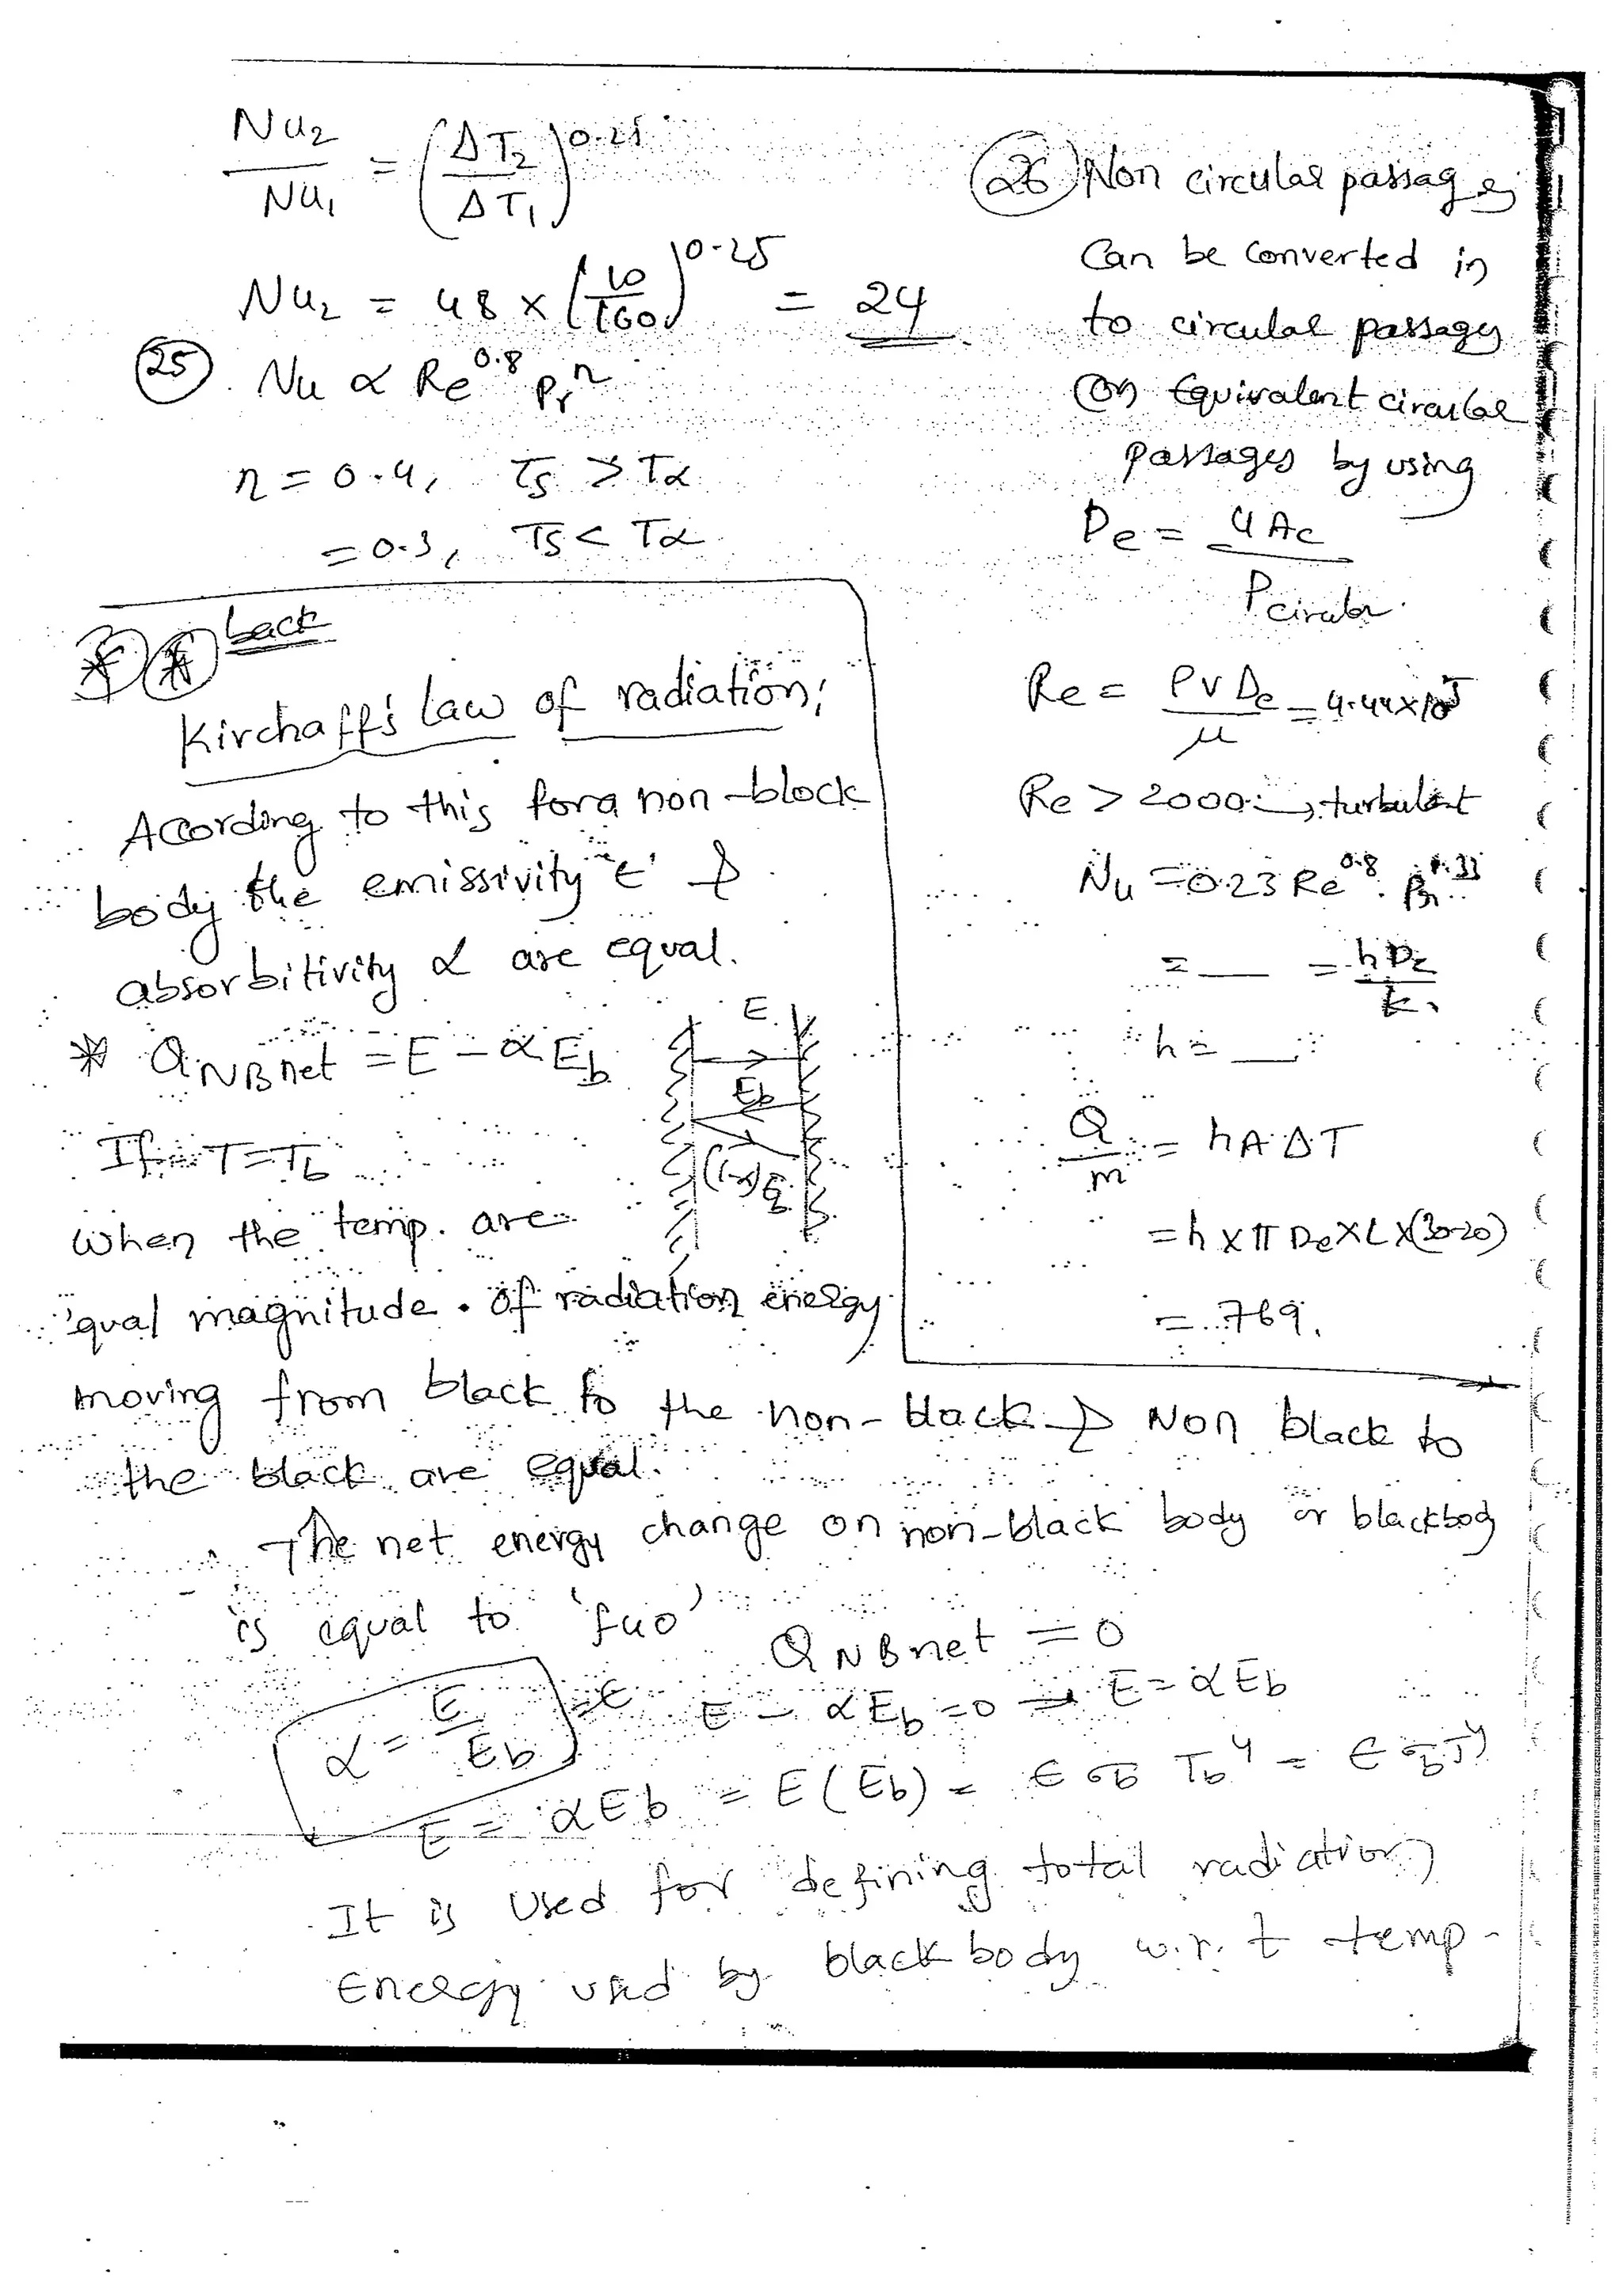 Nu2 / Nu1 = (ΔT2 / ΔT1)^0.25
Nu2 = 48 × (10/160)^0.25 = 24
(25). Nu α Re^0.8 Pr^n
n = 0.4, Ts > Tα
= 0.3, Ts < Tα
(26) Non circular passages
Can be Converted in
to circular passages
(or) Equivalent circular
passages by using
De = 4Ac / Pcircular.
Re = ρVDe / μ = 4.44×10^5
Re > 2000 → turbulent
Nu = 0.23 Re^0.8 Pr^0.33
= __ = hDe / k.
h = __
Q/m = hAΔT
= h × π De × L × (30-20)
= 769.
back
Kirchaff's Law of radiation;
According to this for a non-block
body the emissivity 'ε' &
absorbitivity α are equal.
* QNBnet = E - αEb
E
Eb
(1-α)Eb
If T = Tb
When the temp. are
qual magnitude. of radiation energy
moving from black to the non-black & Non black to
the black are equal.
The net energy change on non-black body or blackbody
is equal to 'fuo'
QNBnet = 0
α = E/Eb = ε
E - αEb = 0 → E = αEb
E = αEb = E(Eb) = ε σb Tb^4 = ε σb T^4
It is Used for defining total radiation
Energy used by black body w.r.t temp-